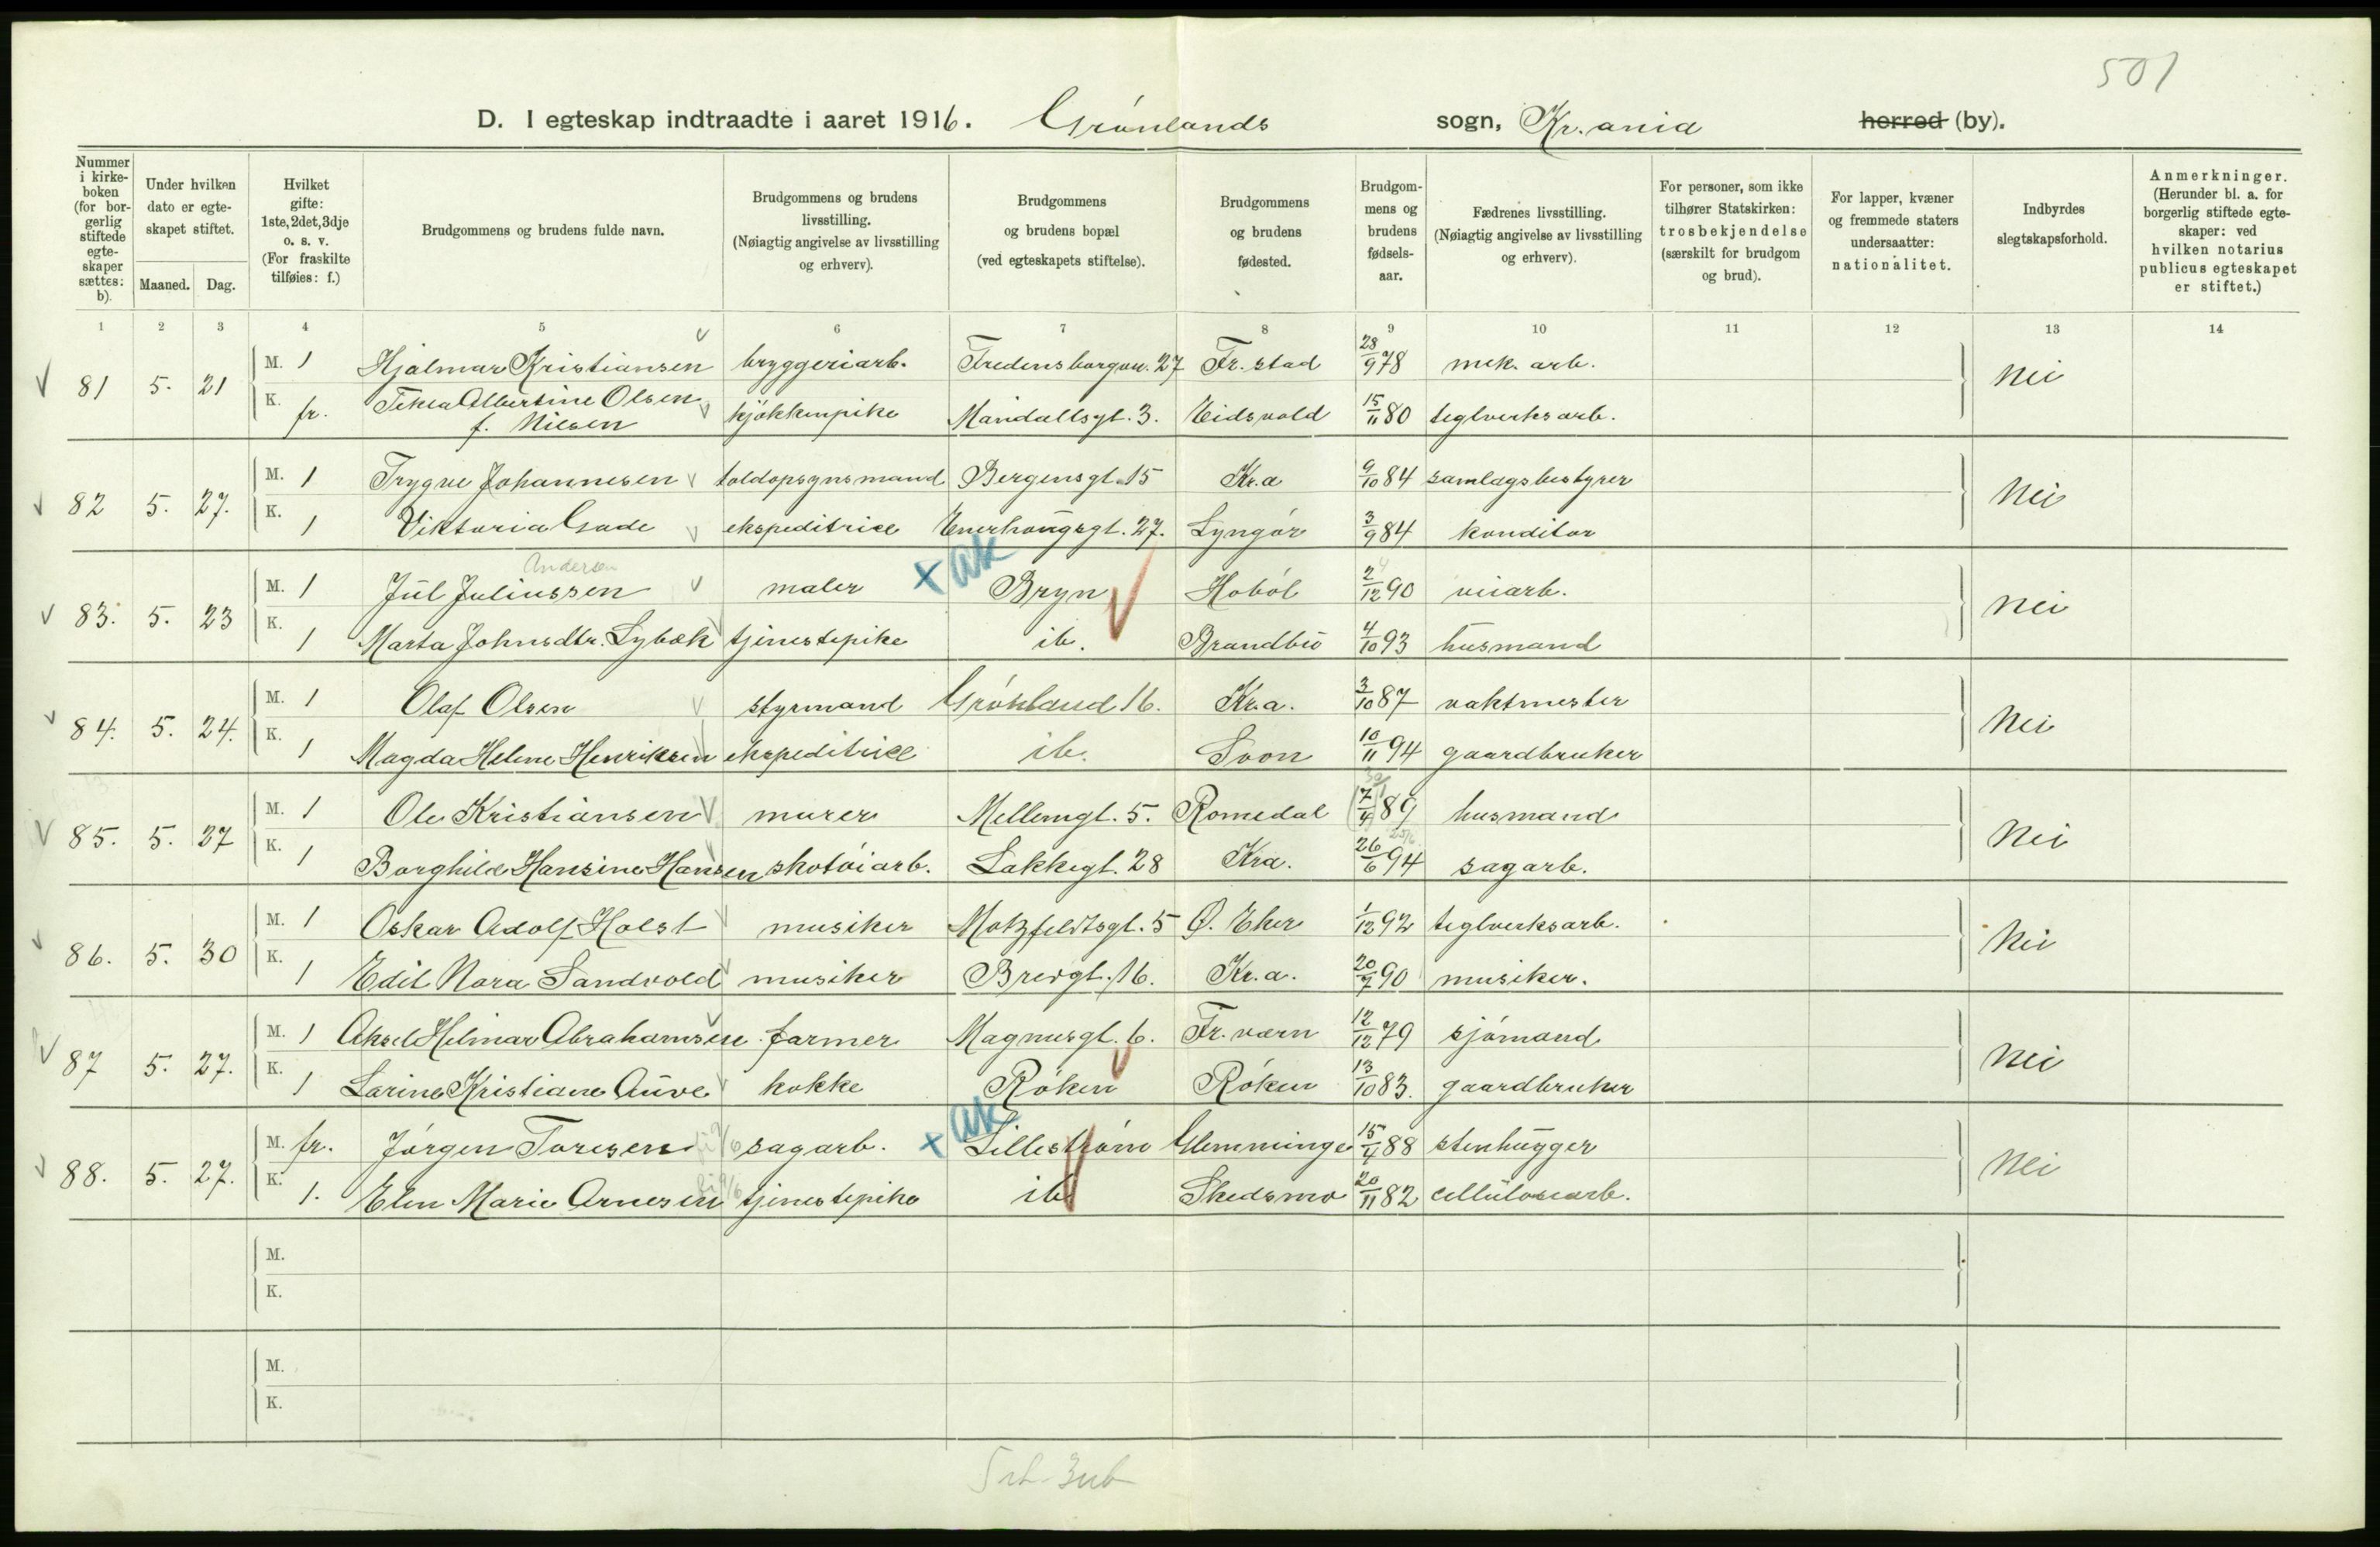 501
D. I egteskap indtraadte i aaret 1916. Grønlands sogn, Kr.ania herred (by).
Nummer i kirkeboken (for borgerlig stiftede egteskaper sættes: b).
Under hvilken dato er egteskapet stiftet.
Maaned. Dag.
Hvilket gifte: 1ste, 2det, 3dje o. s. v. (For fraskilte tilføies: f.)
Brudgommens og brudens fulde navn.
Brudgommens og brudens livsstilling. (Nøiagtig angivelse av livsstilling og erhverv).
Brudgommens og brudens bopæl (ved egteskapets stiftelse).
Brudgommens og brudens fødested.
Brudgommens og brudens fødselsaar.
Fædrenes livsstilling. (Nøiagtig angivelse av livsstilling og erhverv).
For personer, som ikke tilhører Statskirken: trosbekjendelse (særskilt for brudgom og brud).
For lapper, kvæner og fremmede staters undersaatter: nationalitet.
Indbyrdes slegtskapsforhold.
Anmerkninger. (Herunder bl. a. for borgerlig stiftede egteskaper: ved hvilken notarius publicus egteskapet er stiftet.)
1 2 3 4 5 6 7 8 9 10 11 12 13 14
81 5. 21 M. 1 Hjalmar Kristiansen bryggeriarb. Fredensborgvn. 27 Fr. stad 28/9 78 mek. arb. Nei
K. fr. Tekla Albertine Olsen f. Nilsen kjøkkenpike Mandallsgt. 3. Eidsvold 15/11 80 teglverksarb.
82 5. 27. M. 1 Trygve Johannesen toldopsynsmand Bergensgt. 15 Kr.a 9/10 84 samlagsbestyrer Nei
K. 1 Viktoria Gade ekspeditrice Enerhaugsgt. 27. Lyngør 3/9 84 konditor
Andersen
83. 5. 23 M. 1 Jul Juliussen maler x ak Bryn Hobøl 2/12 90 veiarb. Nei
K. 1 Marta Johnsdtr. Lybæk tjenestepike ib. Brandbu 4/10 93 husmand
84. 5. 24. M. 1 Olaf Olsen styrmand Grønland 16. Kr.a. 3/10 87 vaktmester Nei
K. 1 Magda Helene Henriksen ekspeditrice ib. Soon 10/11 94 gaardbruker
85. 5. 27 M. 1 Ole Kristiansen murer Mellemgt. 5. Romedal (7/4) 89 husmand Nei
K. 1 Borghild Hansine Hansen skotøiarb. Lakkegt. 28 Kra. 26/6 94 sagarb.
86. 5. 30 M. 1 Oskar Adolf Holst musiker Motzfeldtsgt. 5 Ø. Eker 1/12 92 teglverksarb. Nei
K. 1 Edit Nora Sandvold musiker Bredgt. 16. Kr.a. 20/7 90 musiker.
87 5. 27. M. 1 Aksel Helmar Abrahamsen farmer Magnusgt. 6. Fr. værn 12/12 79 sjømand Nei
K. 1 Larine Kristiane Auve kokke Røken Røken 13/10 83. gaardbruker
88. 5. 27. M. fr. Jørgen Toresen sagarb. x ak Lillestrøm Glemminge 15/4 88 stenhugger Nei
K. 1. Elen Marie Arnesen tjenestepike ib. Skedsmo 20/11 82 cellulosearb.
M.
K.
M.
K.